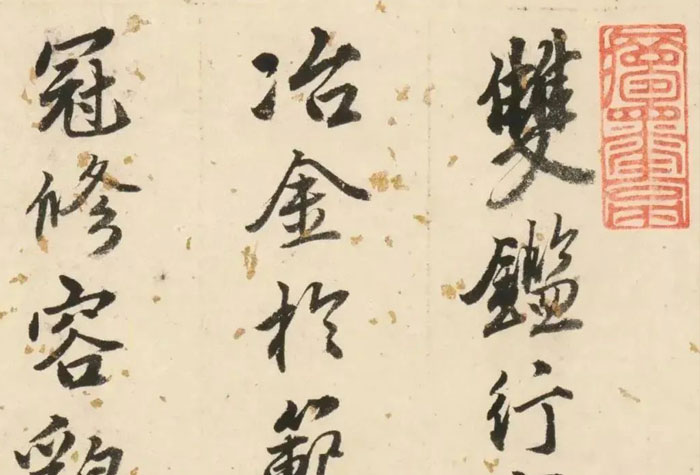 雙鑑行
冶金於範
冠修容